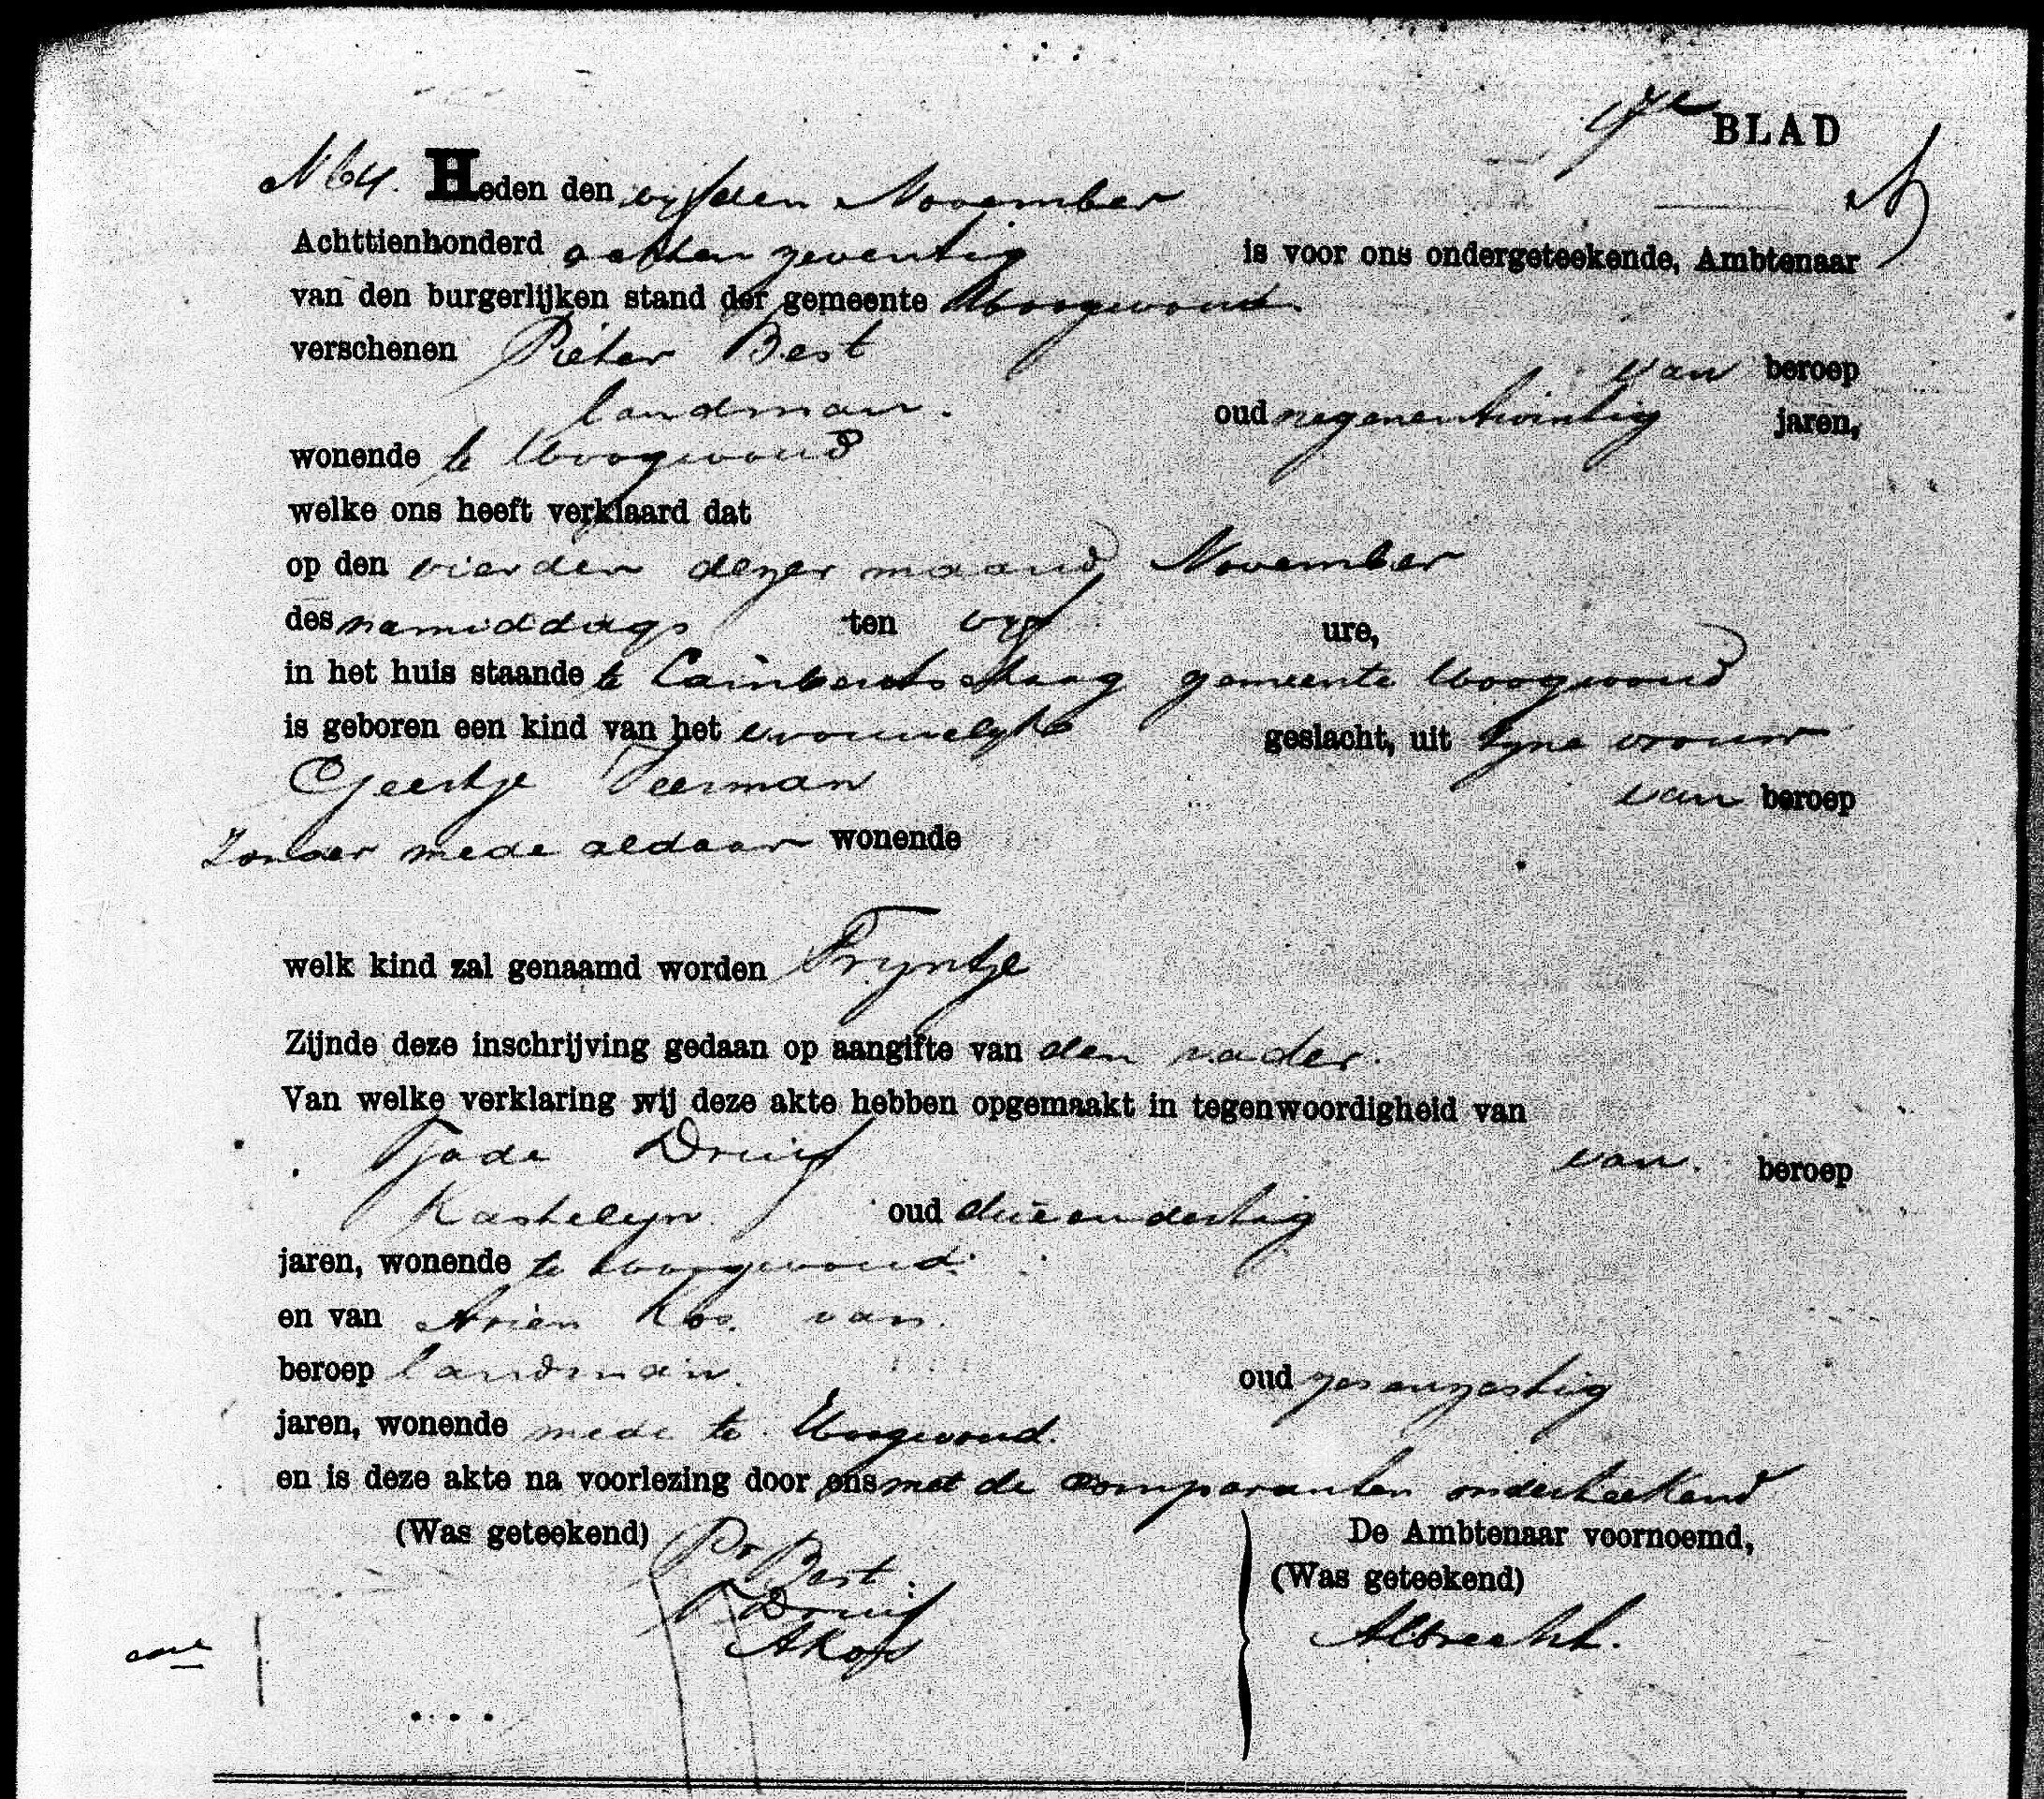 9e BLAD
N 64. Heden den vijfden November
Achttienhonderd achtenzeventig is voor ons ondergeteekende, Ambtenaar
van den burgerlijken stand der gemeente Hoogwoud.
verschenen Pieter Best van beroep
landman. oud negenentwintig jaren,
wonende te Hoogwoud
welke ons heeft verklaard dat
op den vierden dezer maand November
des namiddags ten vijf ure,
in het huis staande te Lambertschaag gemeente Hoogwoud
is geboren een kind van het vrouwelijke geslacht, uit zijne vrouw
Geertje Veerman van beroep
zonder mede aldaar wonende
welk kind zal genaamd worden Trijntje
Zijnde deze inschrijving gedaan op aangifte van den vader.
Van welke verklaring wij deze akte hebben opgemaakt in tegenwoordigheid van
Tjade Druif van. beroep
Kastelijn oud drieendertig
jaren, wonende te Hoogwoud.
en van Arien van.
beroep landman. oud zesenzestig
jaren, wonende mede te Hoogwoud.
en is deze akte na voorlezing door ons met de comparanten onderteekend
(Was geteekend) Pr Best De Ambtenaar voornoemd,
T Druif (Was geteekend)
Albrecht.